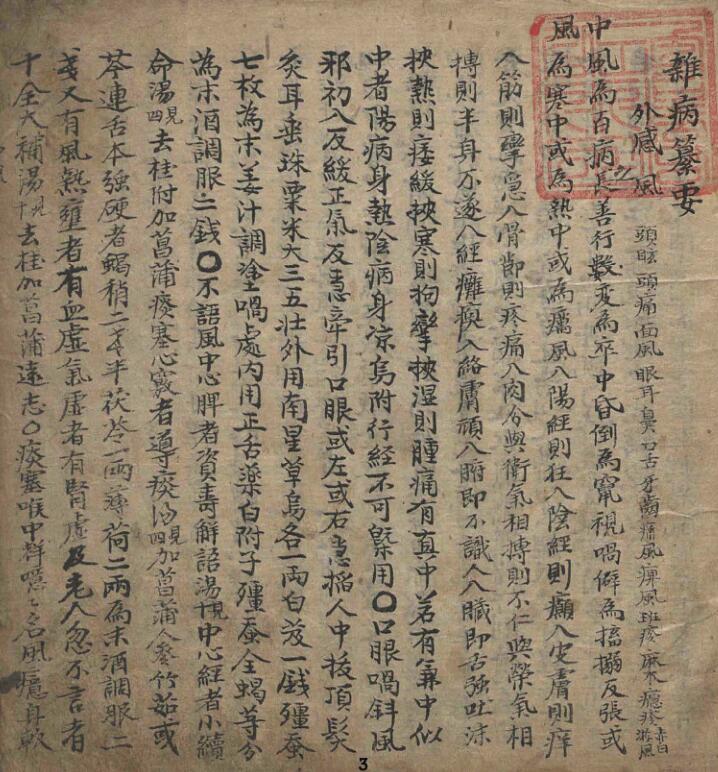 雜病纂要
外感 風 頭眩 頭痛 面風 眼耳鼻口舌牙齒 痛風 痺風 斑疹 麻木 癮疹 赤白游風
中風為百病之長善行數變為卒中昏倒為竄視喎僻為搐搦反張或
風為寒中或為熱中或為癘風入陽經則狂入陰經則癲入皮膚則痒
入筋則攣急入骨節則疼痛入肉分與衛氣相搏則不仁與榮氣相
搏則半身不遂入經癱瘓入絡膚頑入腑即不識人入臟即舌強吐沫
挾熱則痿緩挾寒則拘攣挾湿則腫痛有真中若有兼中似
中者陽病身熱陰病身凉烏附行経不可槩用〇口眼喎斜風
邪初入反緩正氣反急牽引口眼或左或右急搯人中拔頂髮
灸耳垂珠粟米大三五壮外用南星草烏各一兩白芨一銭殭蚕
七枚為末姜汁調塗喎處内用正舌藥白附子殭蚕全蝎等分
為末酒調服二銭〇不語風中心脾者資壽解語湯見十中心經者小續
命湯見四去桂附加菖蒲痰塞心竅者導痰湯見四加菖蒲人參竹茹或
芩連舌本強硬者蝎稍二戔半茯苓一兩薄荷二兩為末酒調服二
戔又有風熱壅者有血虛氣虛者有腎虛及老人忽不言者
十全大補湯見十去桂加菖蒲遠志〇痰塞喉中聲嘎〻名風癔身軟
3